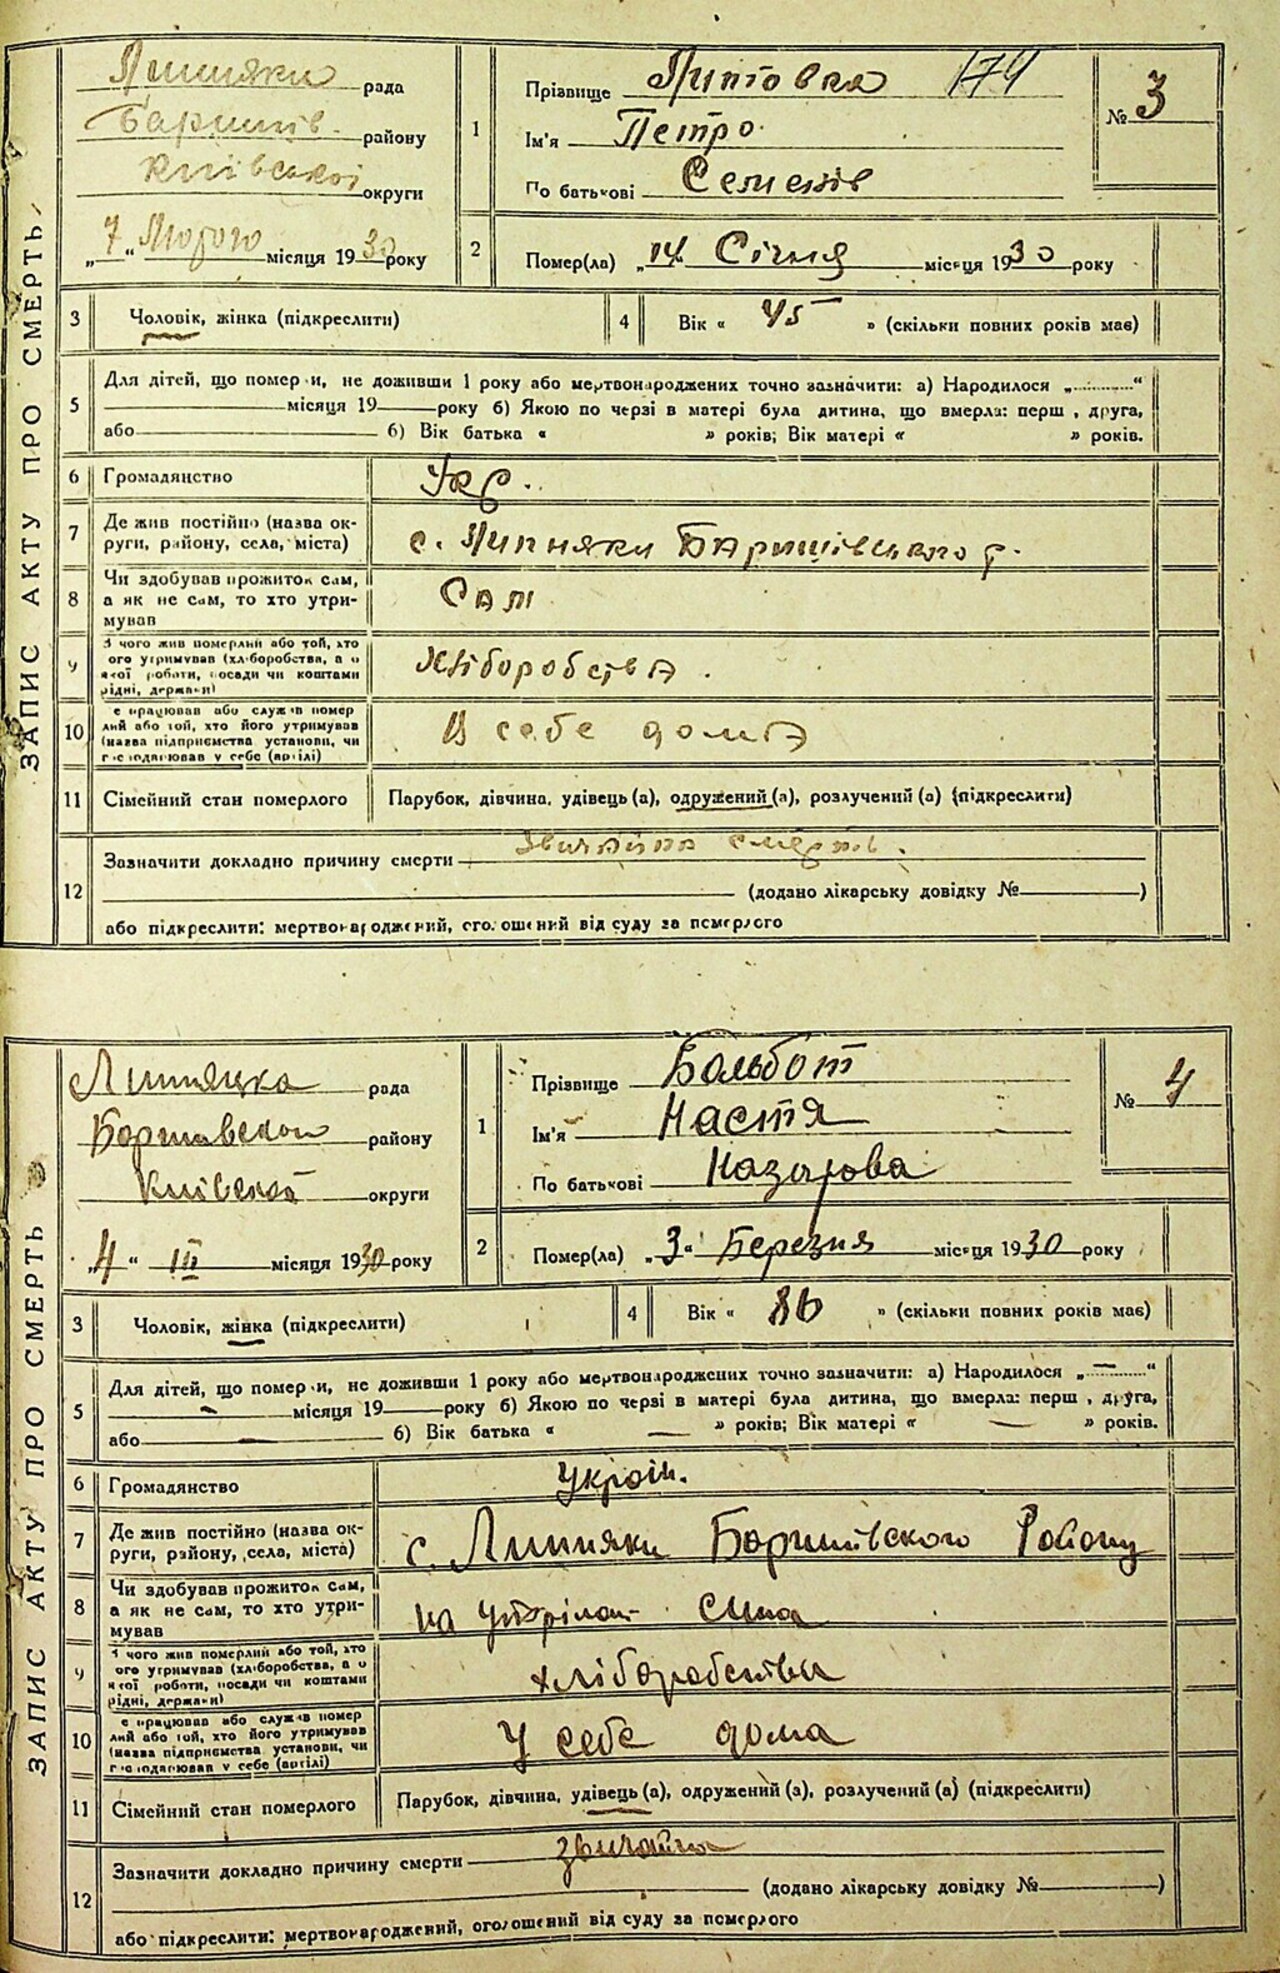 ЗАПИС АКТУ ПРО СМЕРТЬ
Липняки рада
Баришів. району
Київської округи
„7“ Лютого місяця 1930 року
1
Прізвище Литовка 174
Ім'я Петро.
По батькові Семенів
№ 3
2
Помер(ла) „14 Січня місяця 1930 року
3 Чоловік, жінка (підкреслити)
4 Вік « 45 » (скільки повних років має)
5 Для дітей, що помер и, не доживши 1 року або мертвонароджених точно зазначити: а) Народилося „..........“
місяця 19 року б) Якою по черзі в матері була дитина, що вмерла: перш , друга,
або 6) Вік батька « » років; Вік матері « » років.
6 Громадянство Укр.
7 Де жив постійно (назва ок-
руги, району, села, міста) с. Липняки Баришівського р.
8 Чи здобував прожиток сам,
а як не сам, то хто утри-
мував Сам
9 З чого жив померлий або той, хто
ого утримував (хліборобства, а о
якої роботи, посади чи коштами
рідні, держави) Хліборобства.
10 е працював або служив помер
лий або той, хто його утримував
(назва підприємства установи, чи
г сподарював у себе (артілі) В себе дома
11 Сімейний стан померлого Парубок, дівчина, удівець (а), одружений (а), розлучений (а) (підкреслити)
12 Зазначити докладно причину смерти звичайна смерть.
(додано лікарську довідку № )
або підкреслити: мертвонароджений, оголошений від суду за померлого
ЗАПИС АКТУ ПРО СМЕРТЬ
Липняцка рада
району
округи
„4“ III місяця 1930 року
1
Прізвище Бальбот
Ім'я Настя
По батькові Назарова
№ 4
2
Помер(ла) „3“ Березня місяця 1930 року
3 Чоловік, жінка (підкреслити)
4 Вік « 86 » (скільки повних років має)
5 Для дітей, що помер и, не доживши 1 року або мертвонароджених точно зазначити: а) Народилося „—“
— місяця 19 року б) Якою по черзі в матері була дитина, що вмерла: перш , друга,
або — 6) Вік батька « — » років; Вік матері « — » років.
6 Громадянство Україн.
7 Де жив постійно (назва ок-
руги, району, села, міста) с. Липняки Баришівского Району
8 Чи здобував прожиток сам,
а як не сам, то хто утри-
мував на сина
9 З чого жив померлий або той, хто
ого утримував (хліборобства, а о
якої роботи, посади чи коштами
рідні, держави) хліборобства
10 е працював або служив помер
лий або той, хто його утримував
(назва підприємства установи, чи
г сподарював у себе (артілі) У себе дома
11 Сімейний стан померлого Парубок, дівчина, удівець (а), одружений (а), розлучений (а) (підкреслити)
12 Зазначити докладно причину смерти звичайна
(додано лікарську довідку № )
або підкреслити: мертвонароджений, оголошений від суду за померлого